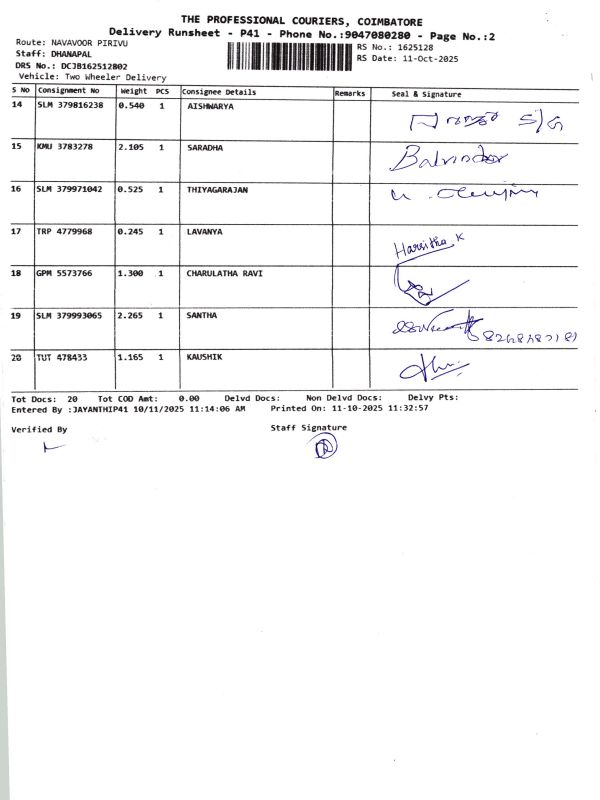 THE PROFESSIONAL COURIERS, COIMBATORE
Delivery Runsheet - P41 - Phone No.:9047080280 - Page No.:2
Route: NAVAVOOR PIRIVU
RS No.: 1625128
Staff: DHANAPAL
RS Date: 11-Oct-2025
DRS No.: DCJB162512802
Vehicle: Two Wheeler Delivery
S No Consignment No Weight PCS Consignee Details Remarks Seal & Signature
14 SLM 379816238 0.540 1 AISHWARYA
15 KMU 3783278 2.105 1 SARADHA
16 SLM 379971042 0.525 1 THIYAGARAJAN
17 TRP 4779968 0.245 1 LAVANYA Harsitha K
18 GPM 5573766 1.300 1 CHARULATHA RAVI
19 SLM 379993065 2.265 1 SANTHA
20 TUT 478433 1.165 1 KAUSHIK
Tot Docs: 20 Tot COD Amt: 0.00 Delvd Docs: Non Delvd Docs: Delvy Pts:
Entered By :JAYANTHIP41 10/11/2025 11:14:06 AM Printed On: 11-10-2025 11:32:57
Verified By Staff Signature